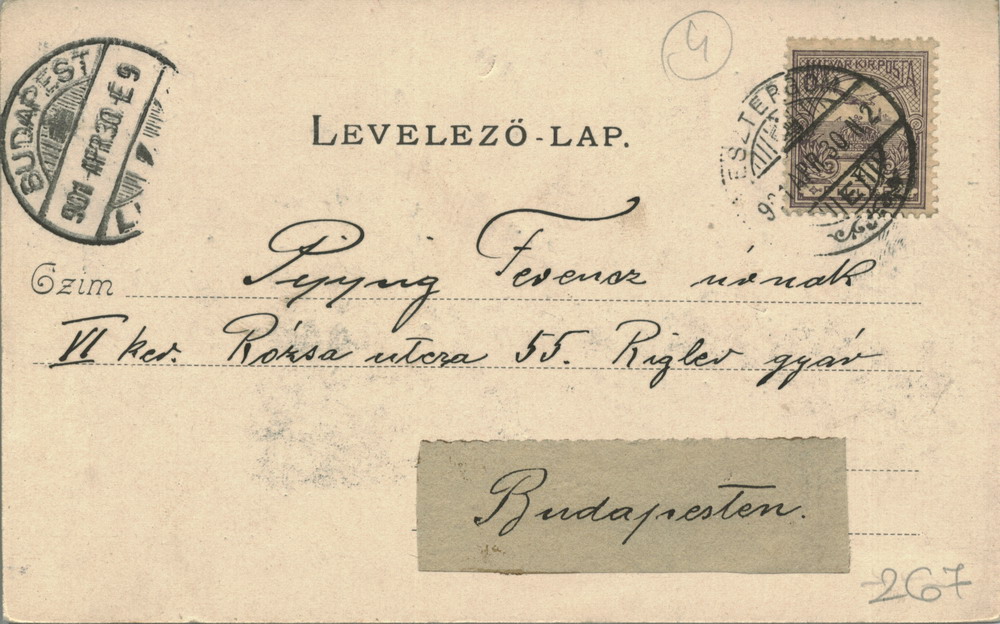 4
BUDAPEST
901 APR.30 E 9
MAGYAR KIR. POSTA
ESZTERGOM
901 APR 30 N.2
LEVELEZŐ-LAP.
Czim
Pipping Ferencz úrnak
VI ker. Rózsa utcza 55. Rigler gyár
Budapesten.
267